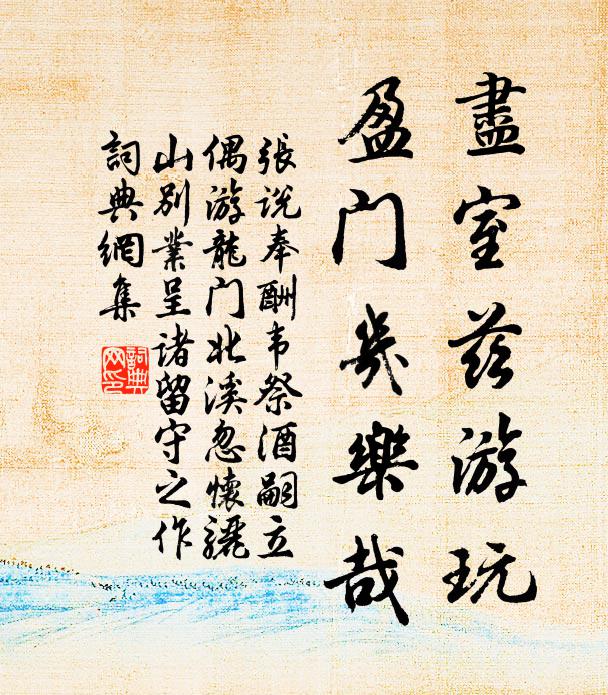 盡室茲游玩
盈门幾樂哉
張说奉酬韦祭酒嗣立
偶游龍门北溪忽懷驪
山别業呈诸留守之作
詞典網集
詞典网印